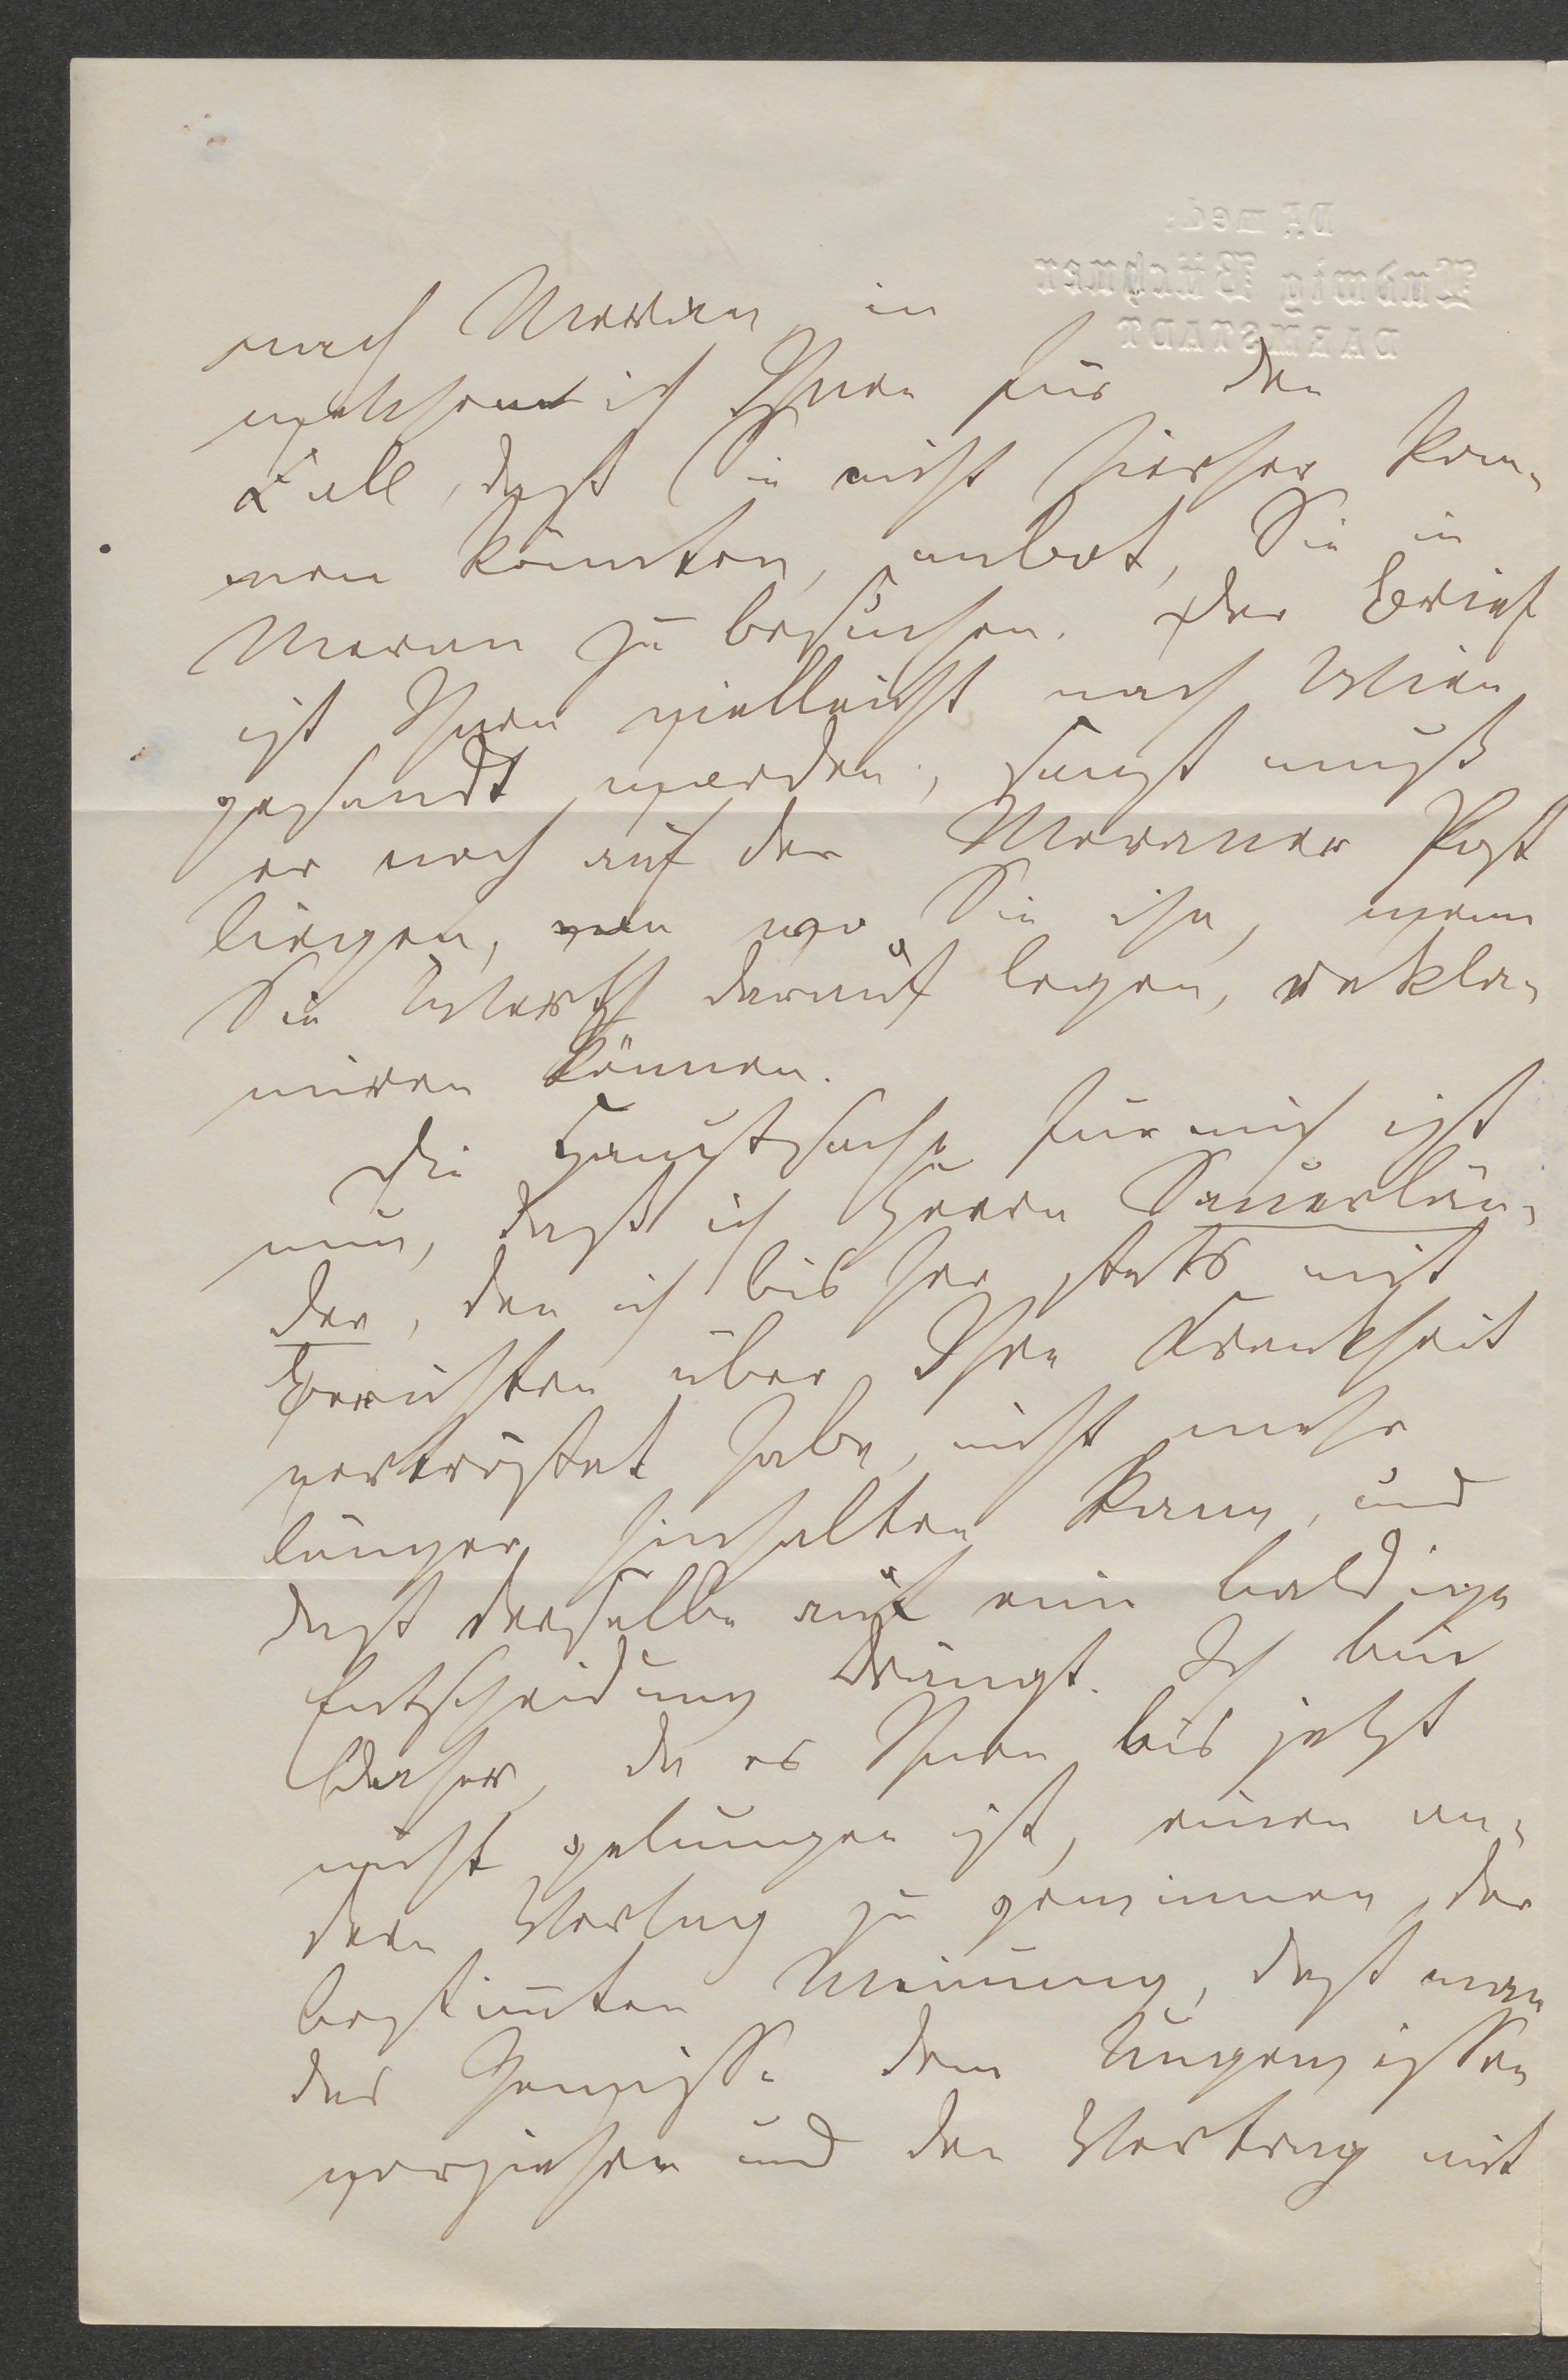 Dr med:
Ludwig Büchner
DARMSTADT
nach Meran, in
welchem ich Ihnen für den
Fall, daß Sie nicht hierher kom-
men könnten, anbot, Sie in
Meran zu besuchen. Der Brief
ist Ihnen vielleicht nach Wien
gesandt worden, sonst muß
er noch auf der Meraner Post
liegen, von wo Sie ihn, wenn
Sie Werth darauf legen, rekla-
miren können.
Die Hauptsache für mich ist
nun, daß ich Herrn Sauerlän-
der, den ich bisher stets mit
Berichten über Ihre Krankheit
vertröstet habe, nicht mehr
länger hinhalten kann, und
daß derselbe auf eine baldige
Entscheidung drängt. Ich bin
daher, da es Ihnen bis jetzt
nicht gelungen ist, einen an-
dern Verlag zu gewinnen, der
bestimten Meinung, daß man
das Gewisse dem Ungewissen
vorziehen und den Vertrag mit